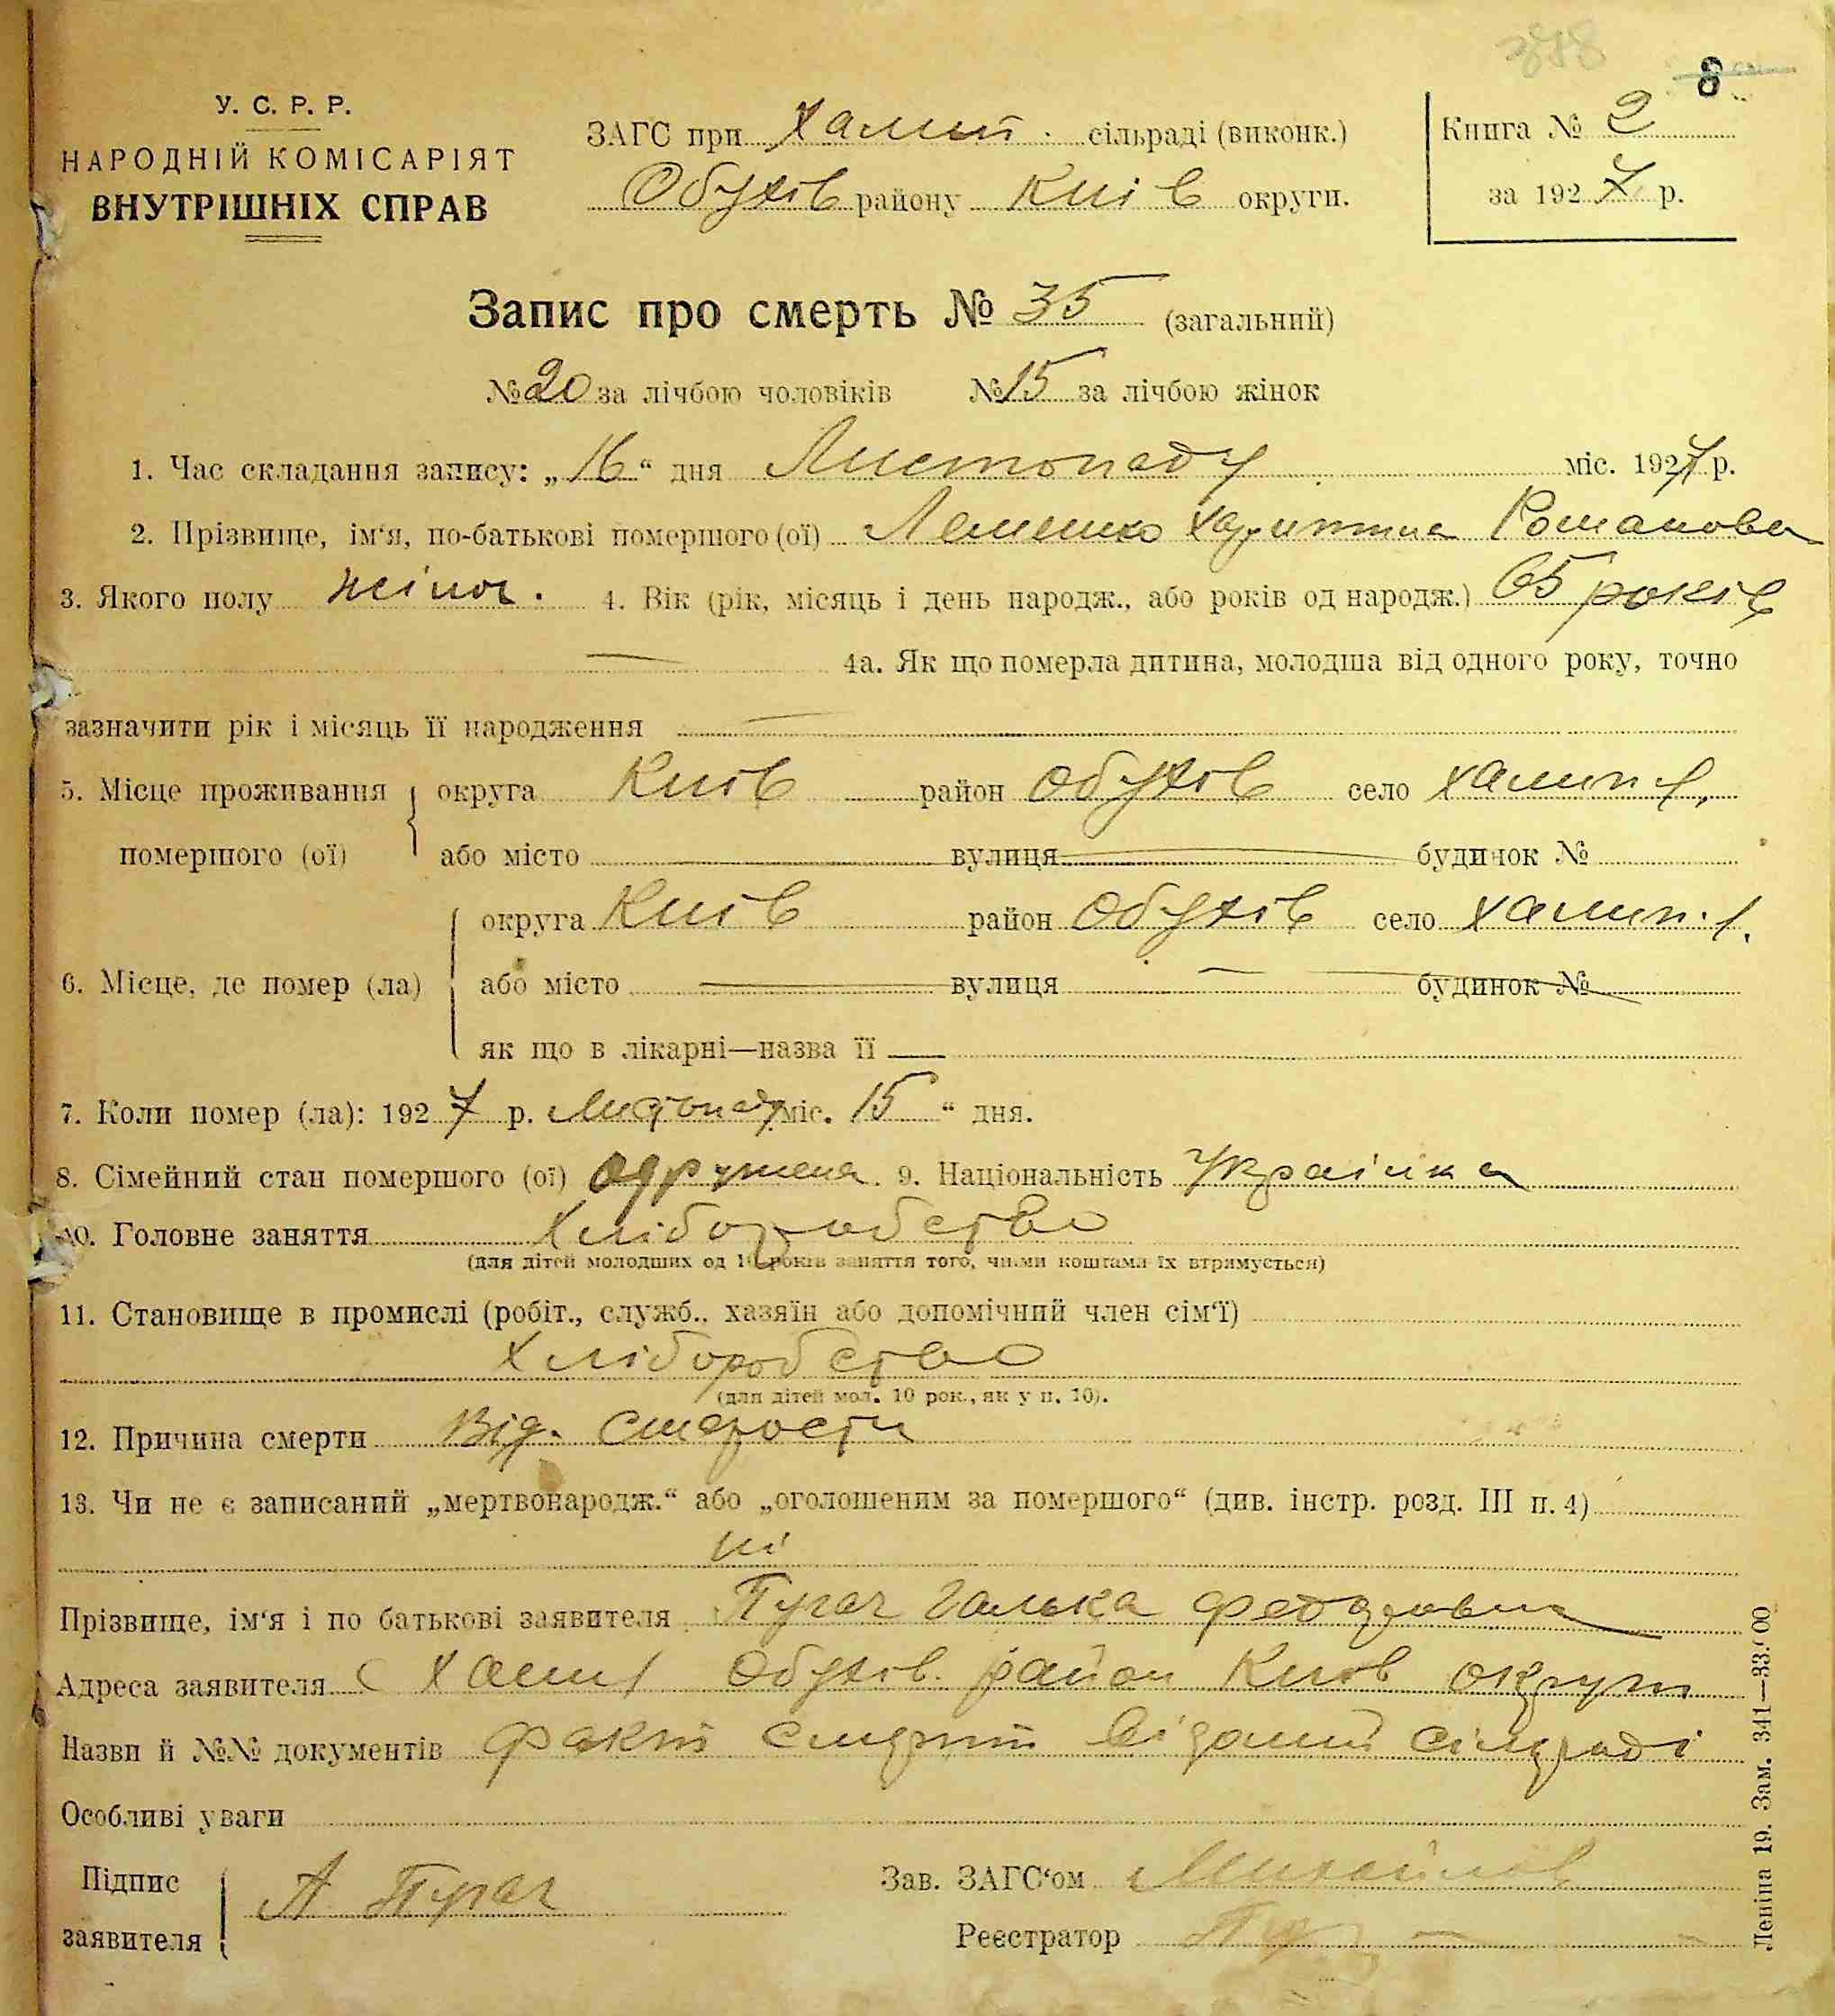 378
8
У. С. Р. Р.
НАРОДНІЙ КОМІСАРІЯТ
ВНУТРІШНІХ СПРАВ
ЗАГС при Халеп. сільраді (виконк.)
Обухів району Київ округи.
Книга № 2
за 1927 р.
Запис про смерть № 35 (загальний)
№ 20 за лічбою чоловіків № 15 за лічбою жінок
1. Час складання запису: „16“ дня Листопаду міс. 1927 р.
2. Прізвище, ім‘я, по-батькові помершого (ої) Харитина Романова
3. Якого полу жіноч. 4. Вік (рік, місяць і день народж., або років од народж.) 65 років
— 4а. Як що померла дитина, молодша від одного року, точно
зазначити рік і місяць її народження —
5. Місце проживання округа Київ район Обухів село
помершого (ої) або місто — вулиця — будинок №
округа Київ район Обухів село
6. Місце, де помер (ла) або місто — вулиця — будинок №
як що в лікарні—назва її —
7. Коли помер (ла): 1927 р. Листопад міс. 15 “ дня.
8. Сімейний стан помершого (ої) одружена. 9. Національність Українка
10. Головне заняття Хліборобство
(для дітей молодших од 10 років заняття того, чиїми коштами їх втримується)
11. Становище в промислі (робіт., служб., хазяїн або допомічний член сім‘ї)
Хліборобство
(для дітей мол. 10 рок., як у п. 10).
12. Причина смерти Від. старости
13. Чи не є записаний „мертвонародж.“ або „оголошеним за помершого“ (див. інстр. розд. III п. 4)
ні
Прізвище, ім‘я і по батькові заявителя Пугач Галька Федоровна
Адреса заявителя С Обухів. район Київ округи
Назви й №№ документів Факт смерти відомий сільраді
Особливі уваги
Підпис заявителя А Пугач
Зав. ЗАГС‘ом Михайлов
Реєстратор
Леніна 19. Зам. 341—33.000